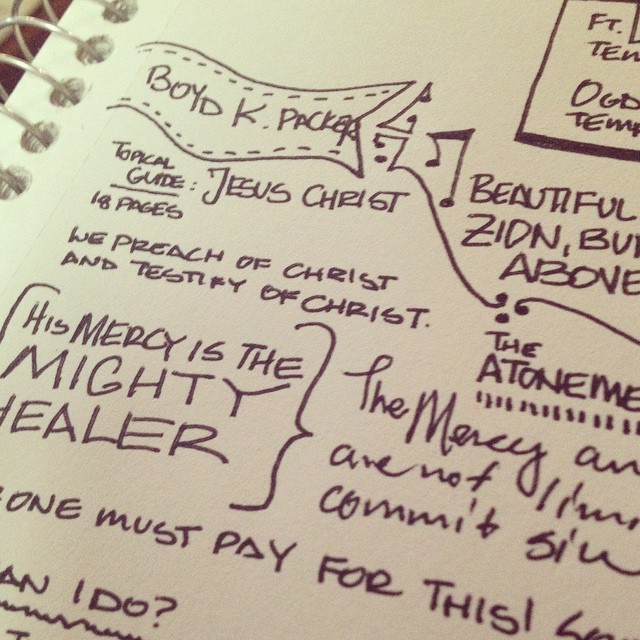 FT.
TEM
OGD
TEMP
BOYD K. PACKER
TOPICAL
GUIDE: JESUS CHRIST
18 PAGES
BEAUTIFUL
ZION, BUI
ABOVE
WE PREACH OF CHRIST
AND TESTIFY OF CHRIST.
HIS MERCY IS THE
MIGHTY
HEALER
THE
ATONEME
The Mercy an
are not limi
commit sin
ONE MUST PAY FOR THIS!
AN I DO?